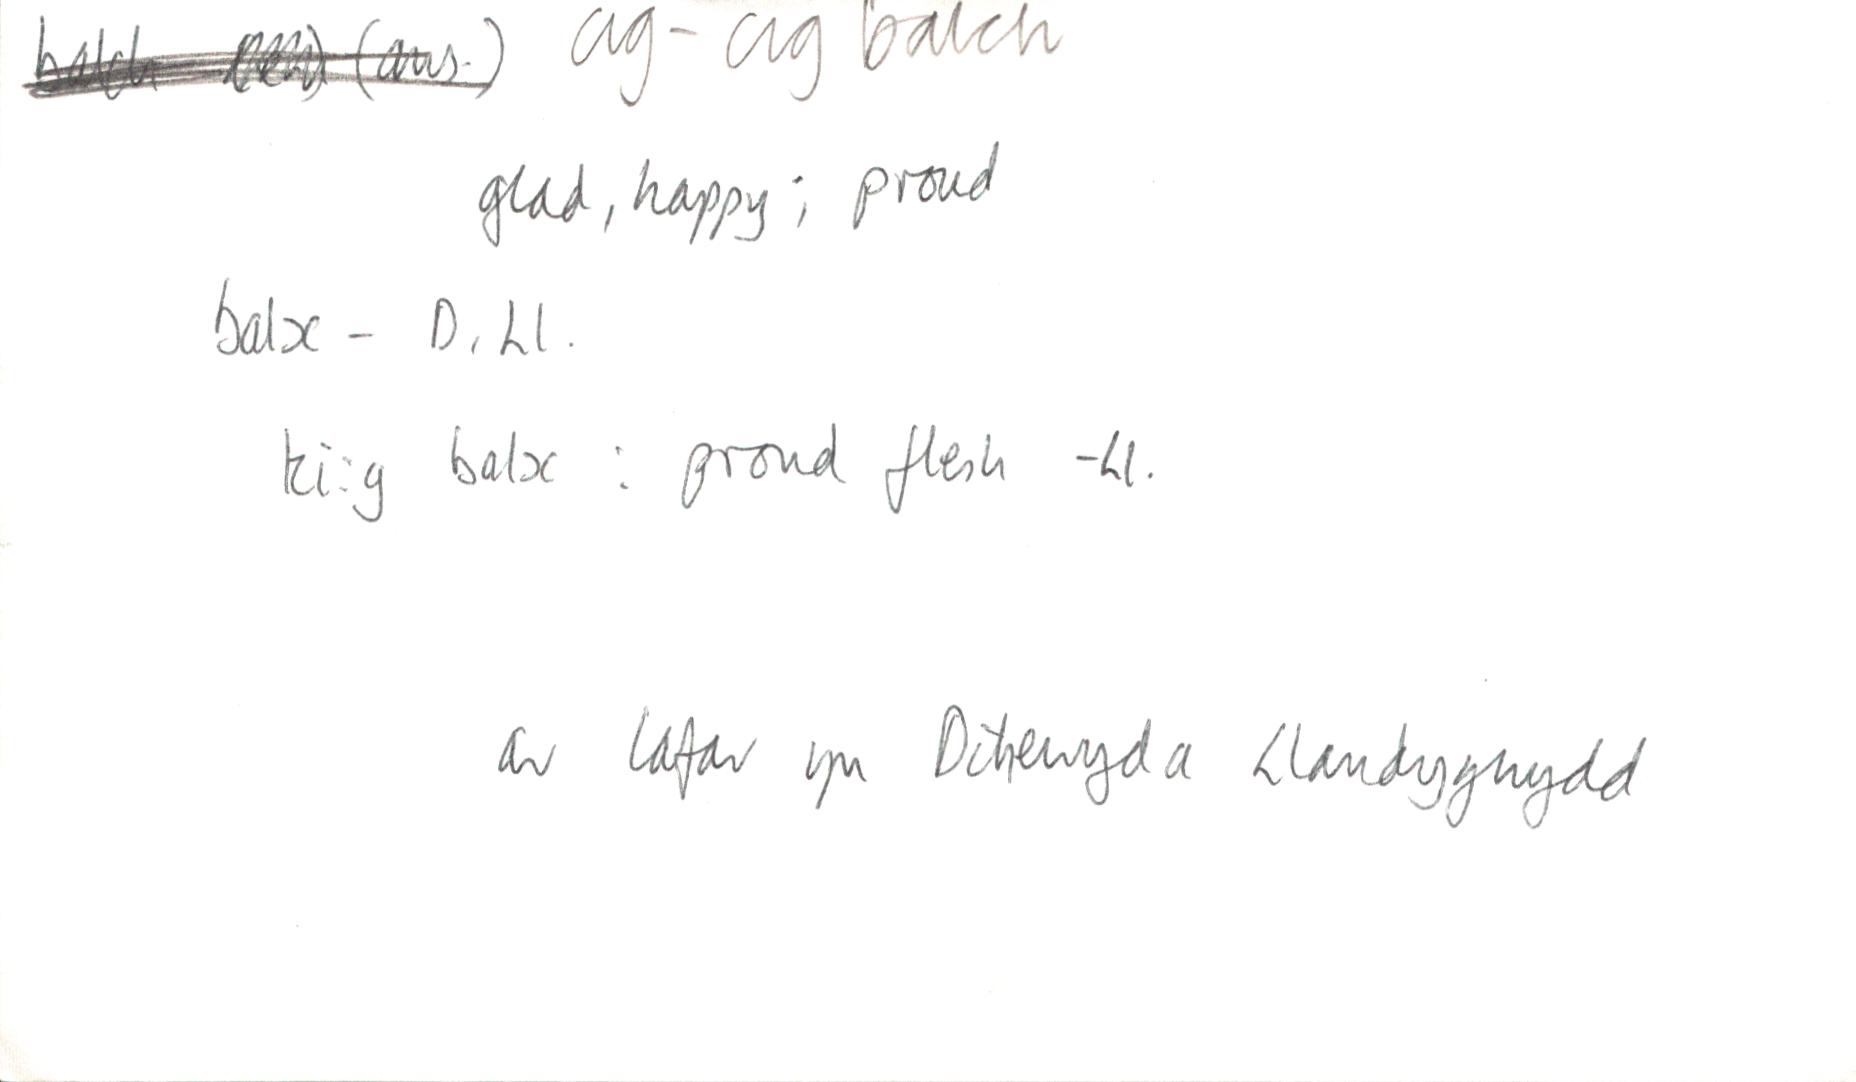 balch (ans.) cig - cig balch
glad, happy; proud
balx - D, Ll.
ki:g balx : proud flesh - Ll.
ar lafar yn Dihewyd a Llandygwydd